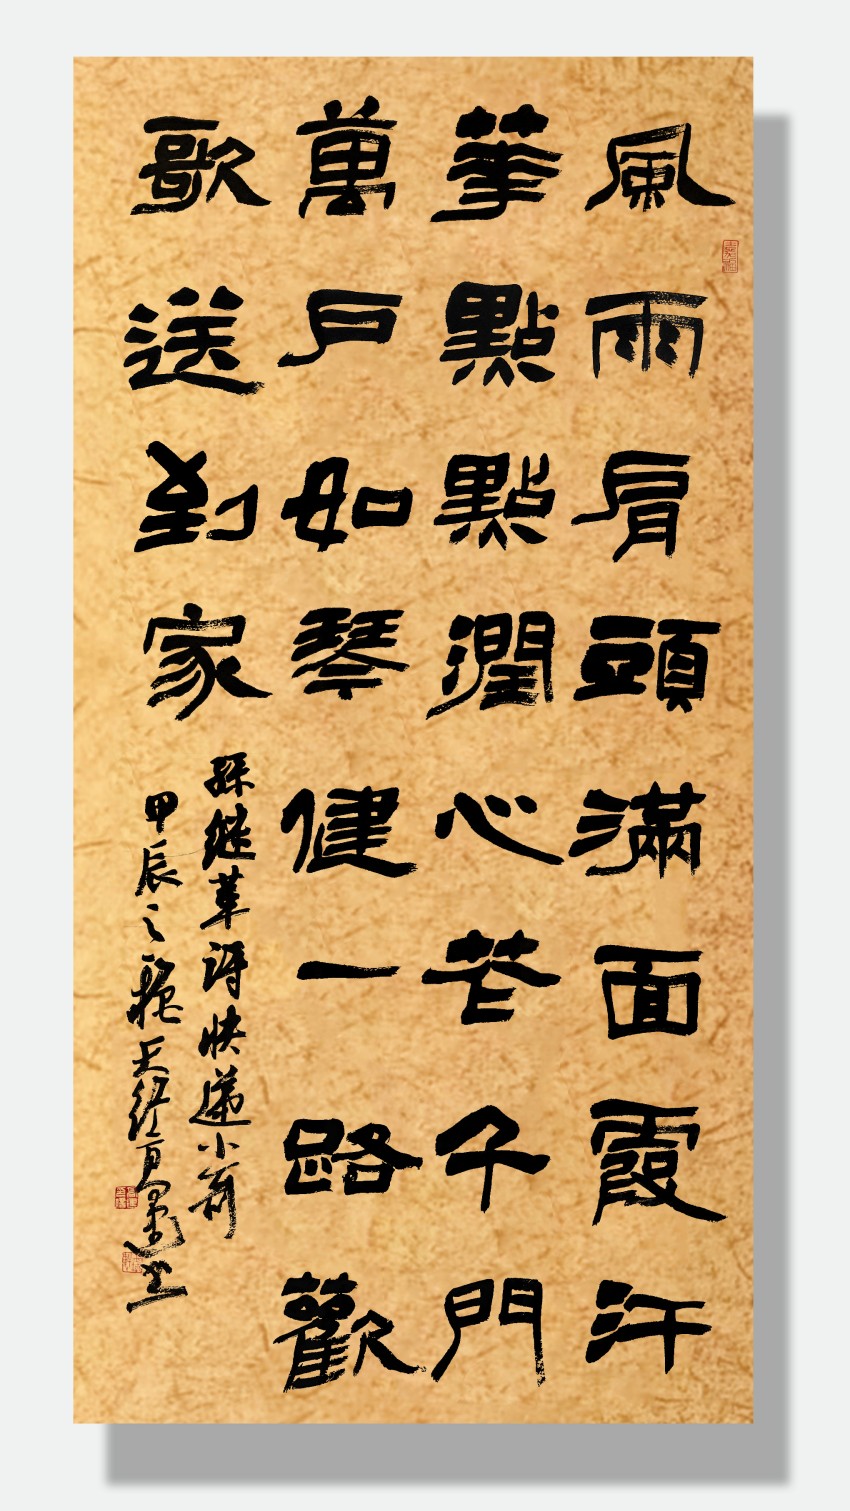 風雨肩頭滿面霞汗
華點點潤心芒千門
萬戶如琴健一路歡
歌送到家
孫繼革詩快遞小哥
甲辰之秋天經